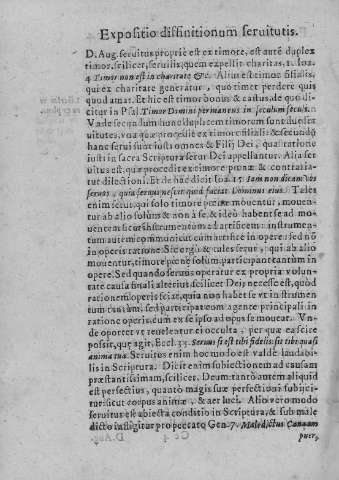 Expositio diffinitionum seruitutis.
D. Aug. seruitus propriè est ex timore, est autē duplex
timor, scilicet, seruilis, quem expellit charitas, 1. Ioa.
4 Timor non est in charitate &c. Alius est timor filialis,
qui ex charitate generatur, quo timet perdere quis
quod amat. Et hic est timor bonus & castus, de quo di-
citur in Psal. Timor Domini permanens in seculum seculi.
Vnde secundum hunc duplicem timorem sunt duæ ser
uitutes, vna quæ procedit ex timore filiali: & secundū
hanc serui sunt iusti omnes & Filij Dei, qua ratione
iusti in sacra Scriptura serui Dei appellantur. Alia ser
uitus est quæ procedit ex timore pœnæ & contraria-
tur dilectioni. Et de hac dicit Ioa. 15. Iam non dicam vos
seruos, quia seruus nescit quid faciat Dominus eius. Tales
enim serui, qui solo timore pœnæ mouentur, mouen-
tur ab alio solùm & non à se, & ideò habent se ad mo-
uentem sicut instrumentum ad artificem: instrumen-
tum autem communicat cum artifice in opere: sed nō
in operis ratione. Sic ergò & tales serui, qui ab alio
mouentur, timore pœnæ solùm, participant tantùm in
opere. Sed quando seruus operatur ex propria volun-
tate causa finali alterius scilicet Dei, necesse est, quòd
rationem operis sciat, quia non habet se vt instrumen
tum tantùm, sed participat cum agente principali in
ratione operis, cum ex se ipso ad opus se moueat. Vn-
de oportet vt reuelentur ei occulta, per quæ cascire
possit, quę agit, Eccl. 33. Seruus si est tibi fidelis, sit tibi quasi
anima tua. Seruitus enim hoc modo est valdè laudabi-
lis in Scriptura. Dicit enim subiectionem ad causam
præstantissimam, scilicet, Deum: tantò autem aliquid
est perfectius, quantò magis suæ perfectioni subijci-
tur: sicut corpus animæ, & aer luci. Alio verò modo
seruitus est abiecta conditio in Scriptura, & sub male
dicto infligitur pro peccato Gen. 7. Maledictus Canaam
puer,